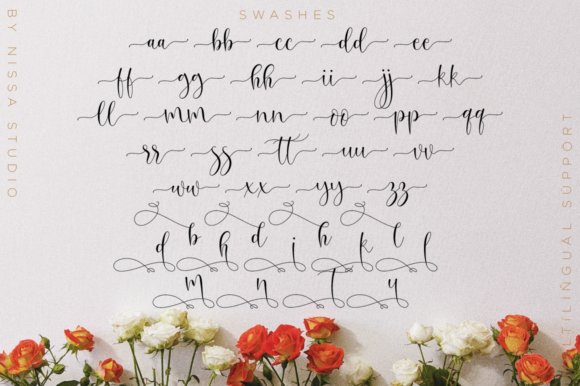 SWASHES
BY NISSA STUDIO
aa bb cc dd ee
ff gg hh ii jj kk
ll mm nn oo pp qq
rr ss tt uu vv
ww xx yy zz
b d h l
d h i k l
m n t y
LTILINGUAL SUPPORT